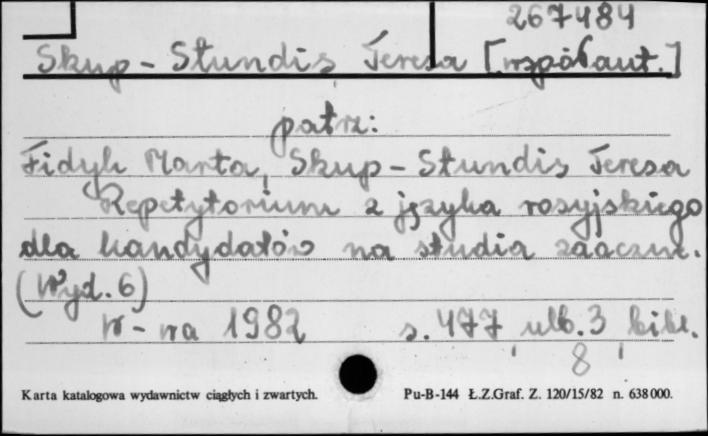 267484
Skup-Stundis Teresa [współaut.]
patrz:
Fidyk Marta, Skup-Stundis Teresa
Repetytorium z języka rosyjskiego
dla kandydatów na studia zaoczne.
(Wyd. 6)
W-wa 1982 s. 477, nlb. 3, bibl.
8
Karta katalogowa wydawnictw ciągłych i zwartych. Pu-B-144 Ł.Z.Graf. Z. 120/15/82 n. 638000.